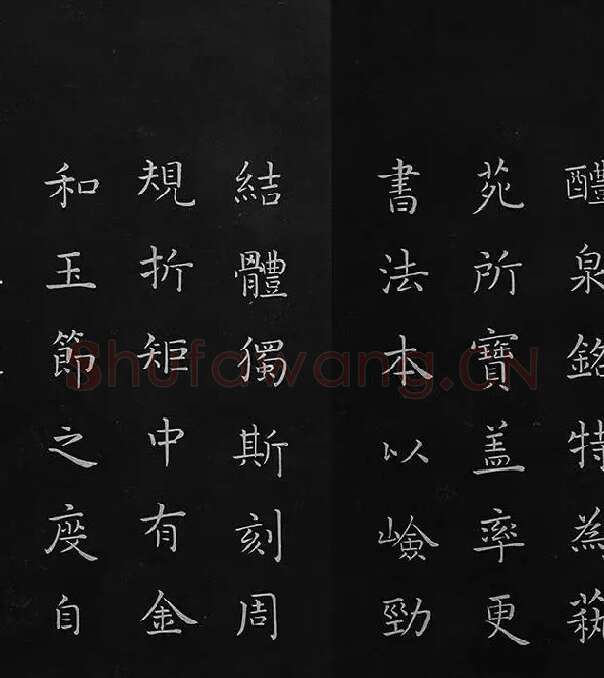 醴泉銘特為蓺
苑所寶盖率更
書法本以嶮勁
結體獨斯刻周
規折矩中有金
和玉節之度自
Shufawang.CN